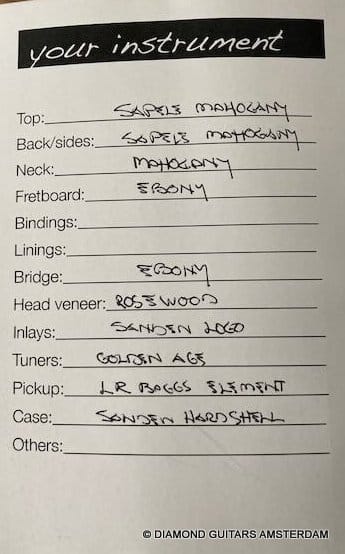 your instrument
Top: SAPELE MAHOGANY
Back/sides: SAPELE MAHOGANY
Neck: MAHOGANY
Fretboard: EBONY
Bindings:
Linings:
Bridge: EBONY
Head veneer: ROSEWOOD
Inlays: SANDEN LOGO
Tuners: GOLDEN AGE
Pickup: LR BAGGS ELEMENT
Case: SANDEN HARDSHELL
Others:
© DIAMOND GUITARS AMSTERDAM